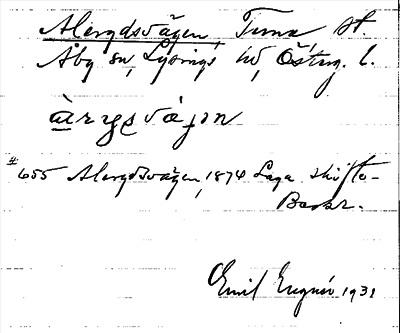 Alergdsvägen, Tuna, St.
Åby sn, Lysings hd, Östrg. l.
àrrgs vá̀gən
# 655 Alergdsvägen, 1874 Laga skifte-
Beskr.
Emil Eugnér 1931